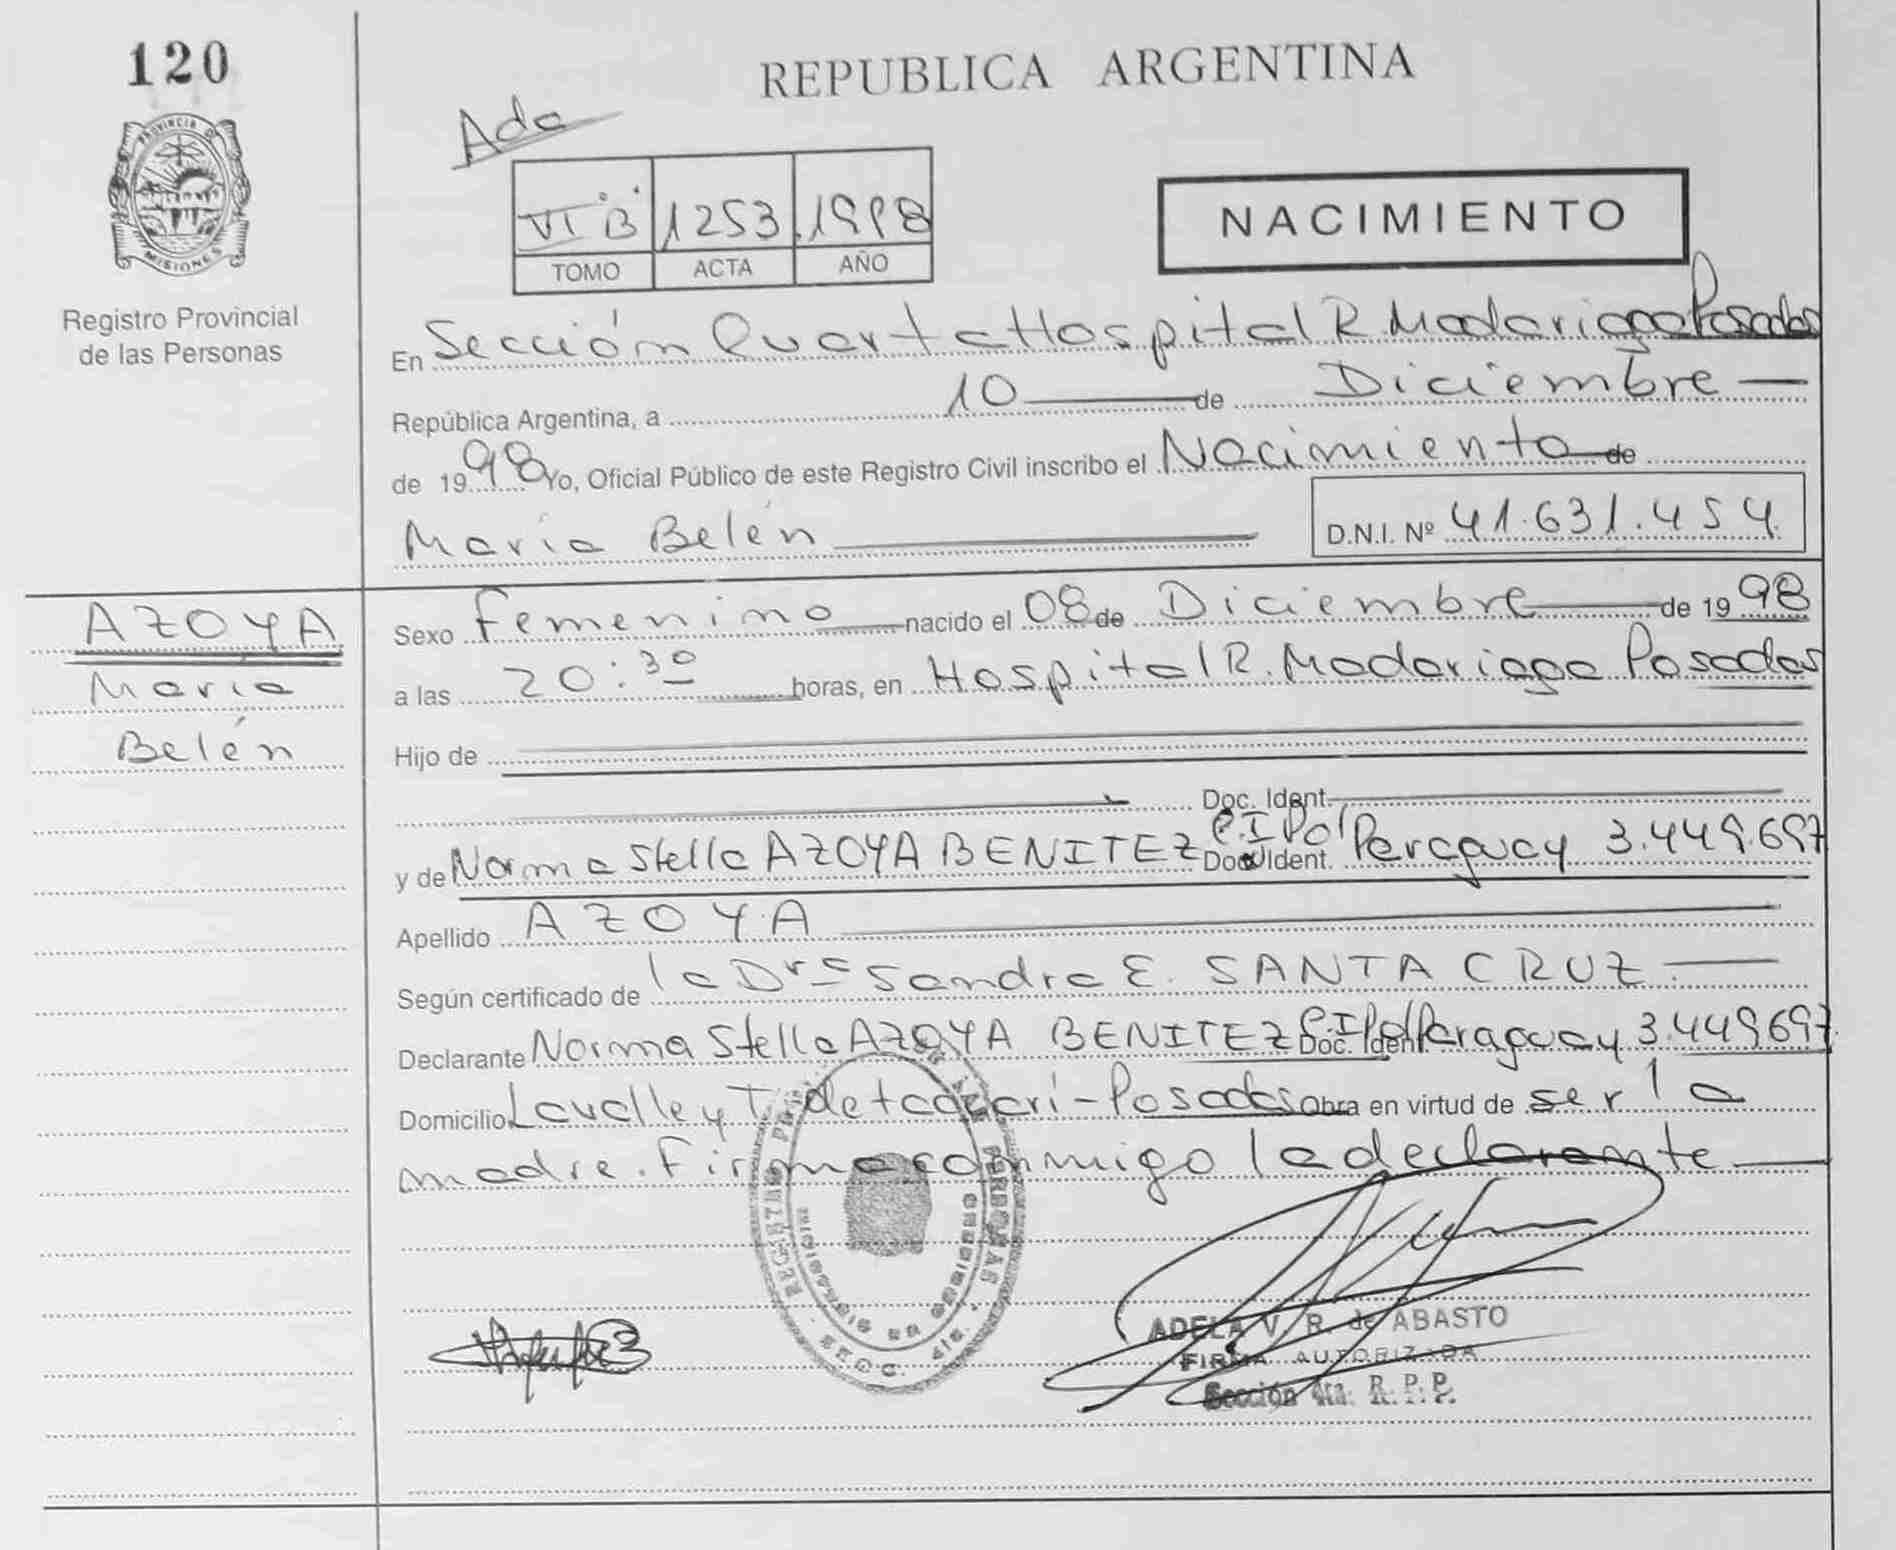 120
REPUBLICA ARGENTINA
PROVINCIA D
MISIONES
Registro Provincial
de las Personas
VI "B" 1253 1998
TOMO ACTA AÑO
NACIMIENTO
En Sección Cuarta Hospital R. Madariaga Posadas
República Argentina, a 10 de Diciembre
de 1998 Yo, Oficial Público de este Registro Civil inscribo el Nacimiento de
María Belén D.N.I. Nº 41.631.454
AZOYA
María
Belén
Sexo Femenino nacido el 08 de Diciembre de 1998
a las 20:30 horas, en Hospital R. Madariaga Posadas
Hijo de
Doc. Ident.
y de Norma Stella AZOYA BENITEZ Doc. Ident. C.I Pol Paraguay 3.449.697
Apellido AZOYA
Según certificado de la Dra Sandra E. SANTA CRUZ
Declarante Norma Stella AZOYA BENITEZ Doc. Ident C.I Pol Paraguay 3.449697
Domicilio Lavalle y Posadas Obra en virtud de ser la
madre. Firma conmigo la declarante
ADELA V. R. de ABASTO
FIRMA AUTORIZADA
Sección 4ta. R. P. P.